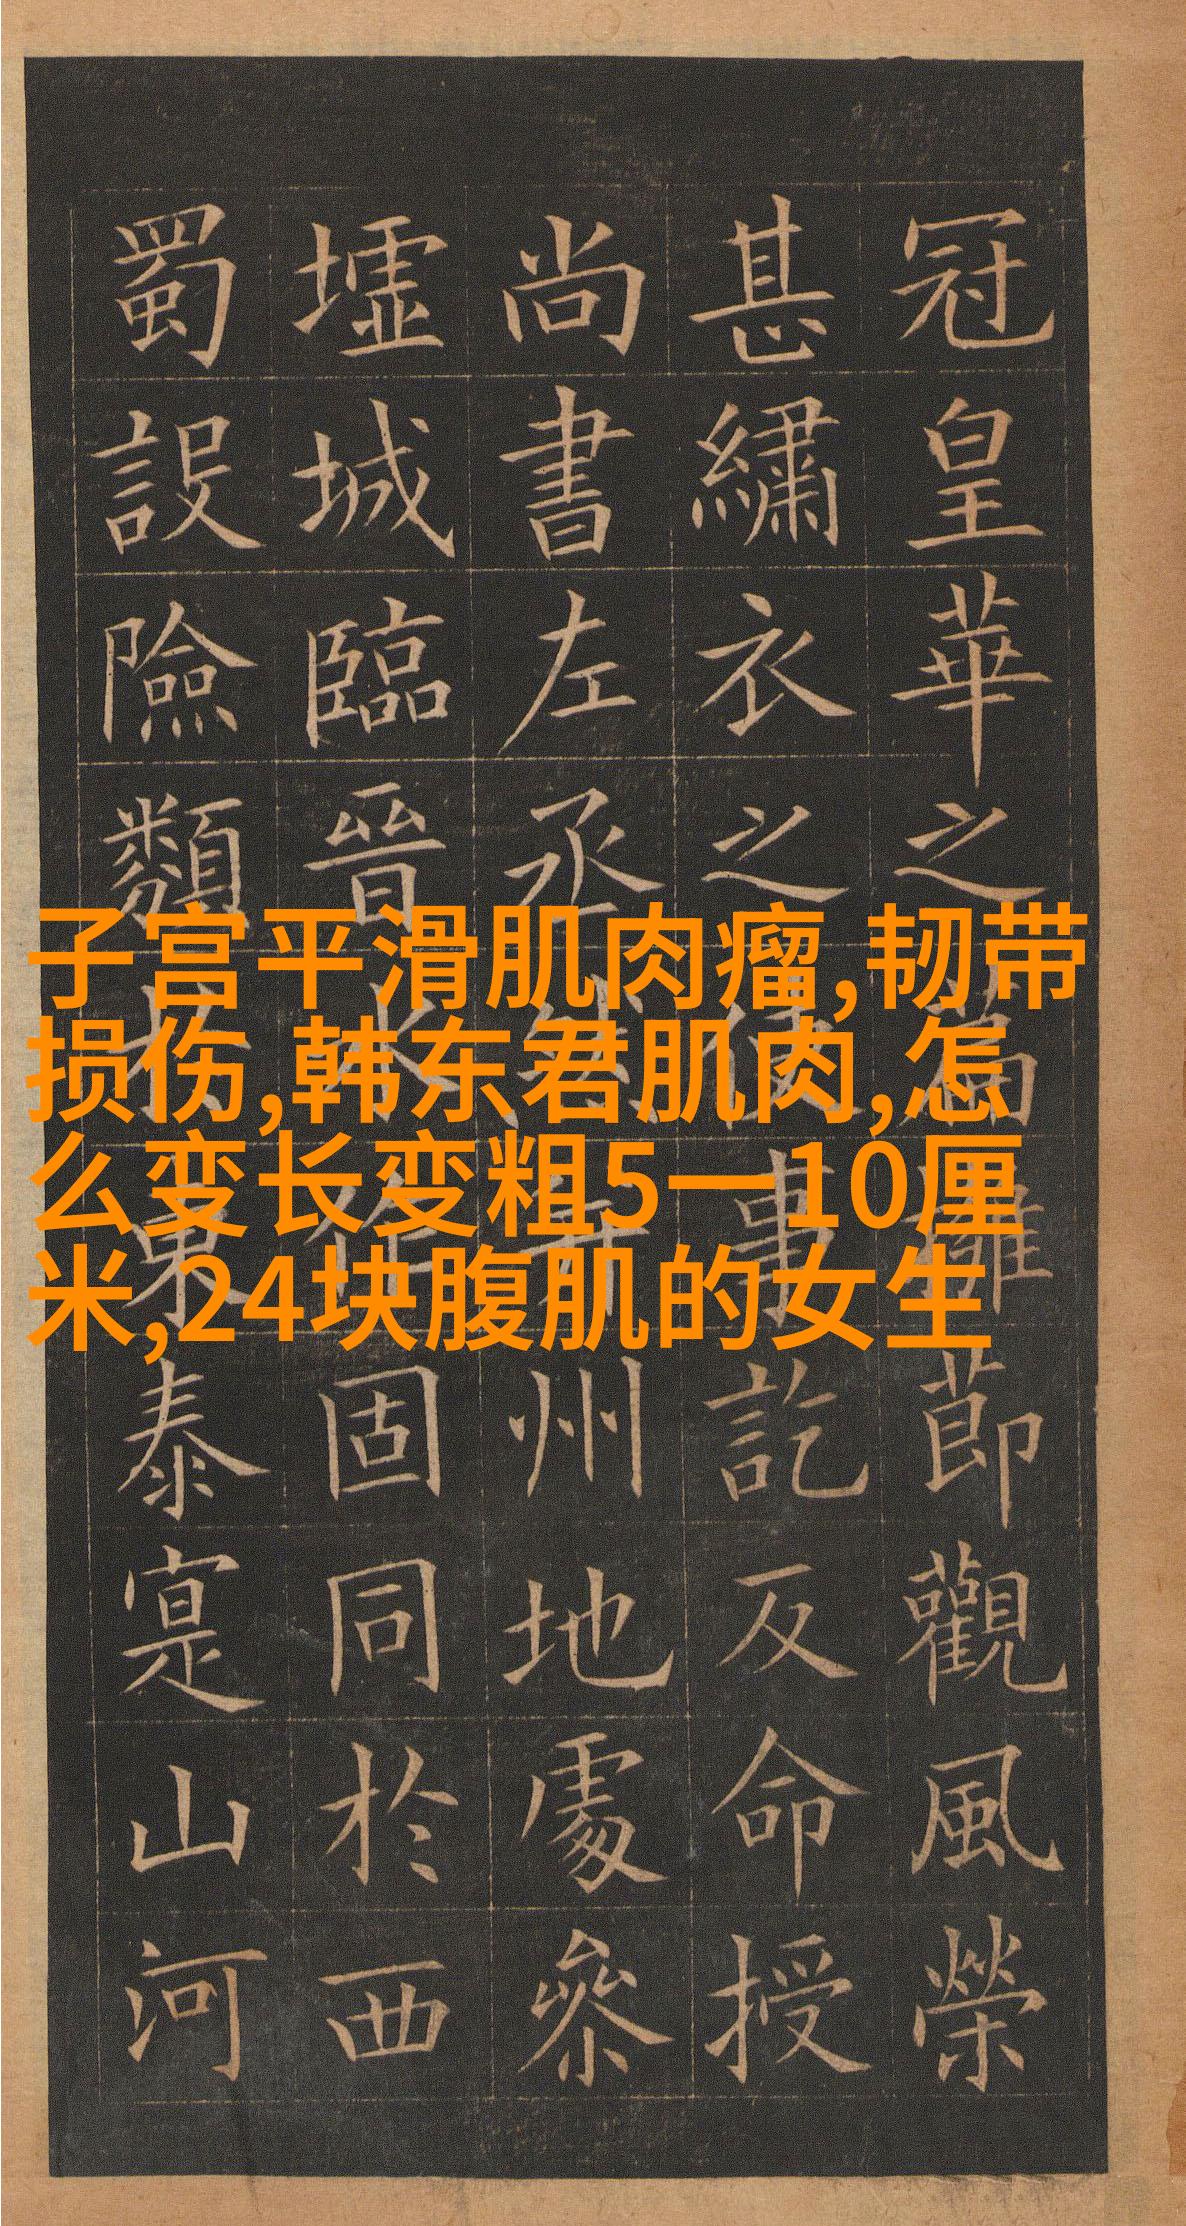 冠皇華之節觀風榮
甚繡衣之使事訖反命授
尚書左丞并州地處參
墟城臨晉水作固同於西
蜀設險類於東泰寔山河
子宫平滑肌肉瘤,韧带
损伤,韩东君肌肉,怎
么变长变粗5一10厘
米,24块腹肌的女生